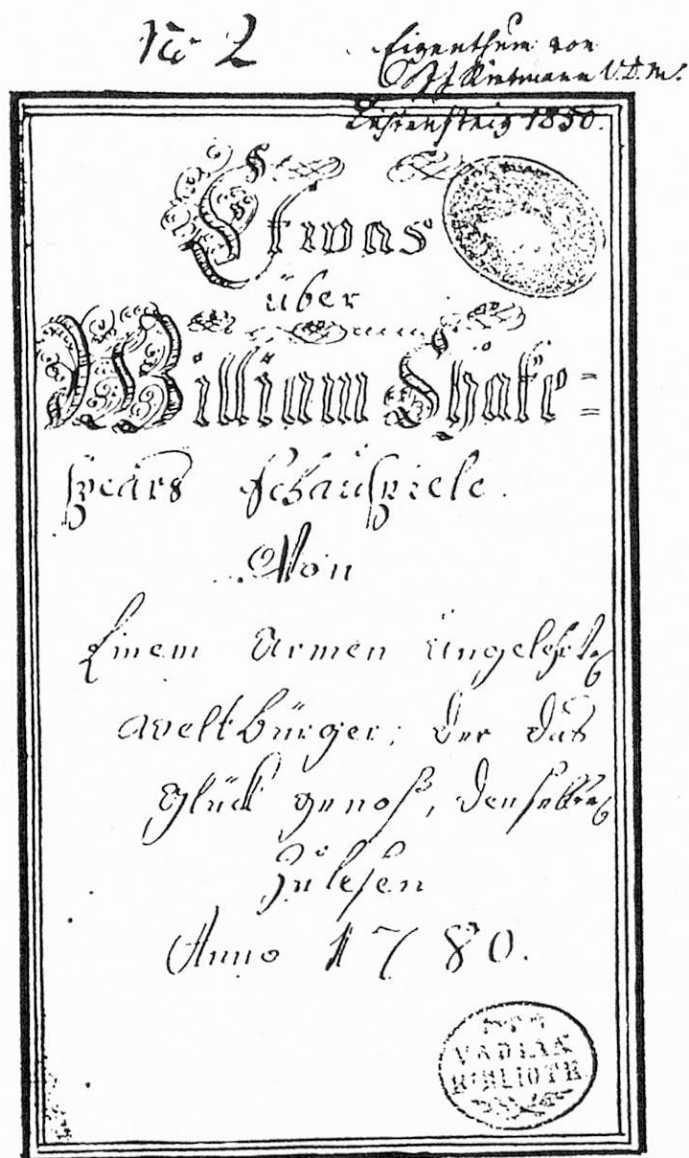 No 2
Eigenthum von
J. J. Rietmann V.D.M.
Lichtensteig 1850.
Etwas
über
William Shake=
spears Schauspiele.
Von
Einem Armen ungelehrten
Weltbürger; der das
Glück genoß, denselben
zulesen
Anno 1780.
VADIAN
BIBLIOTH